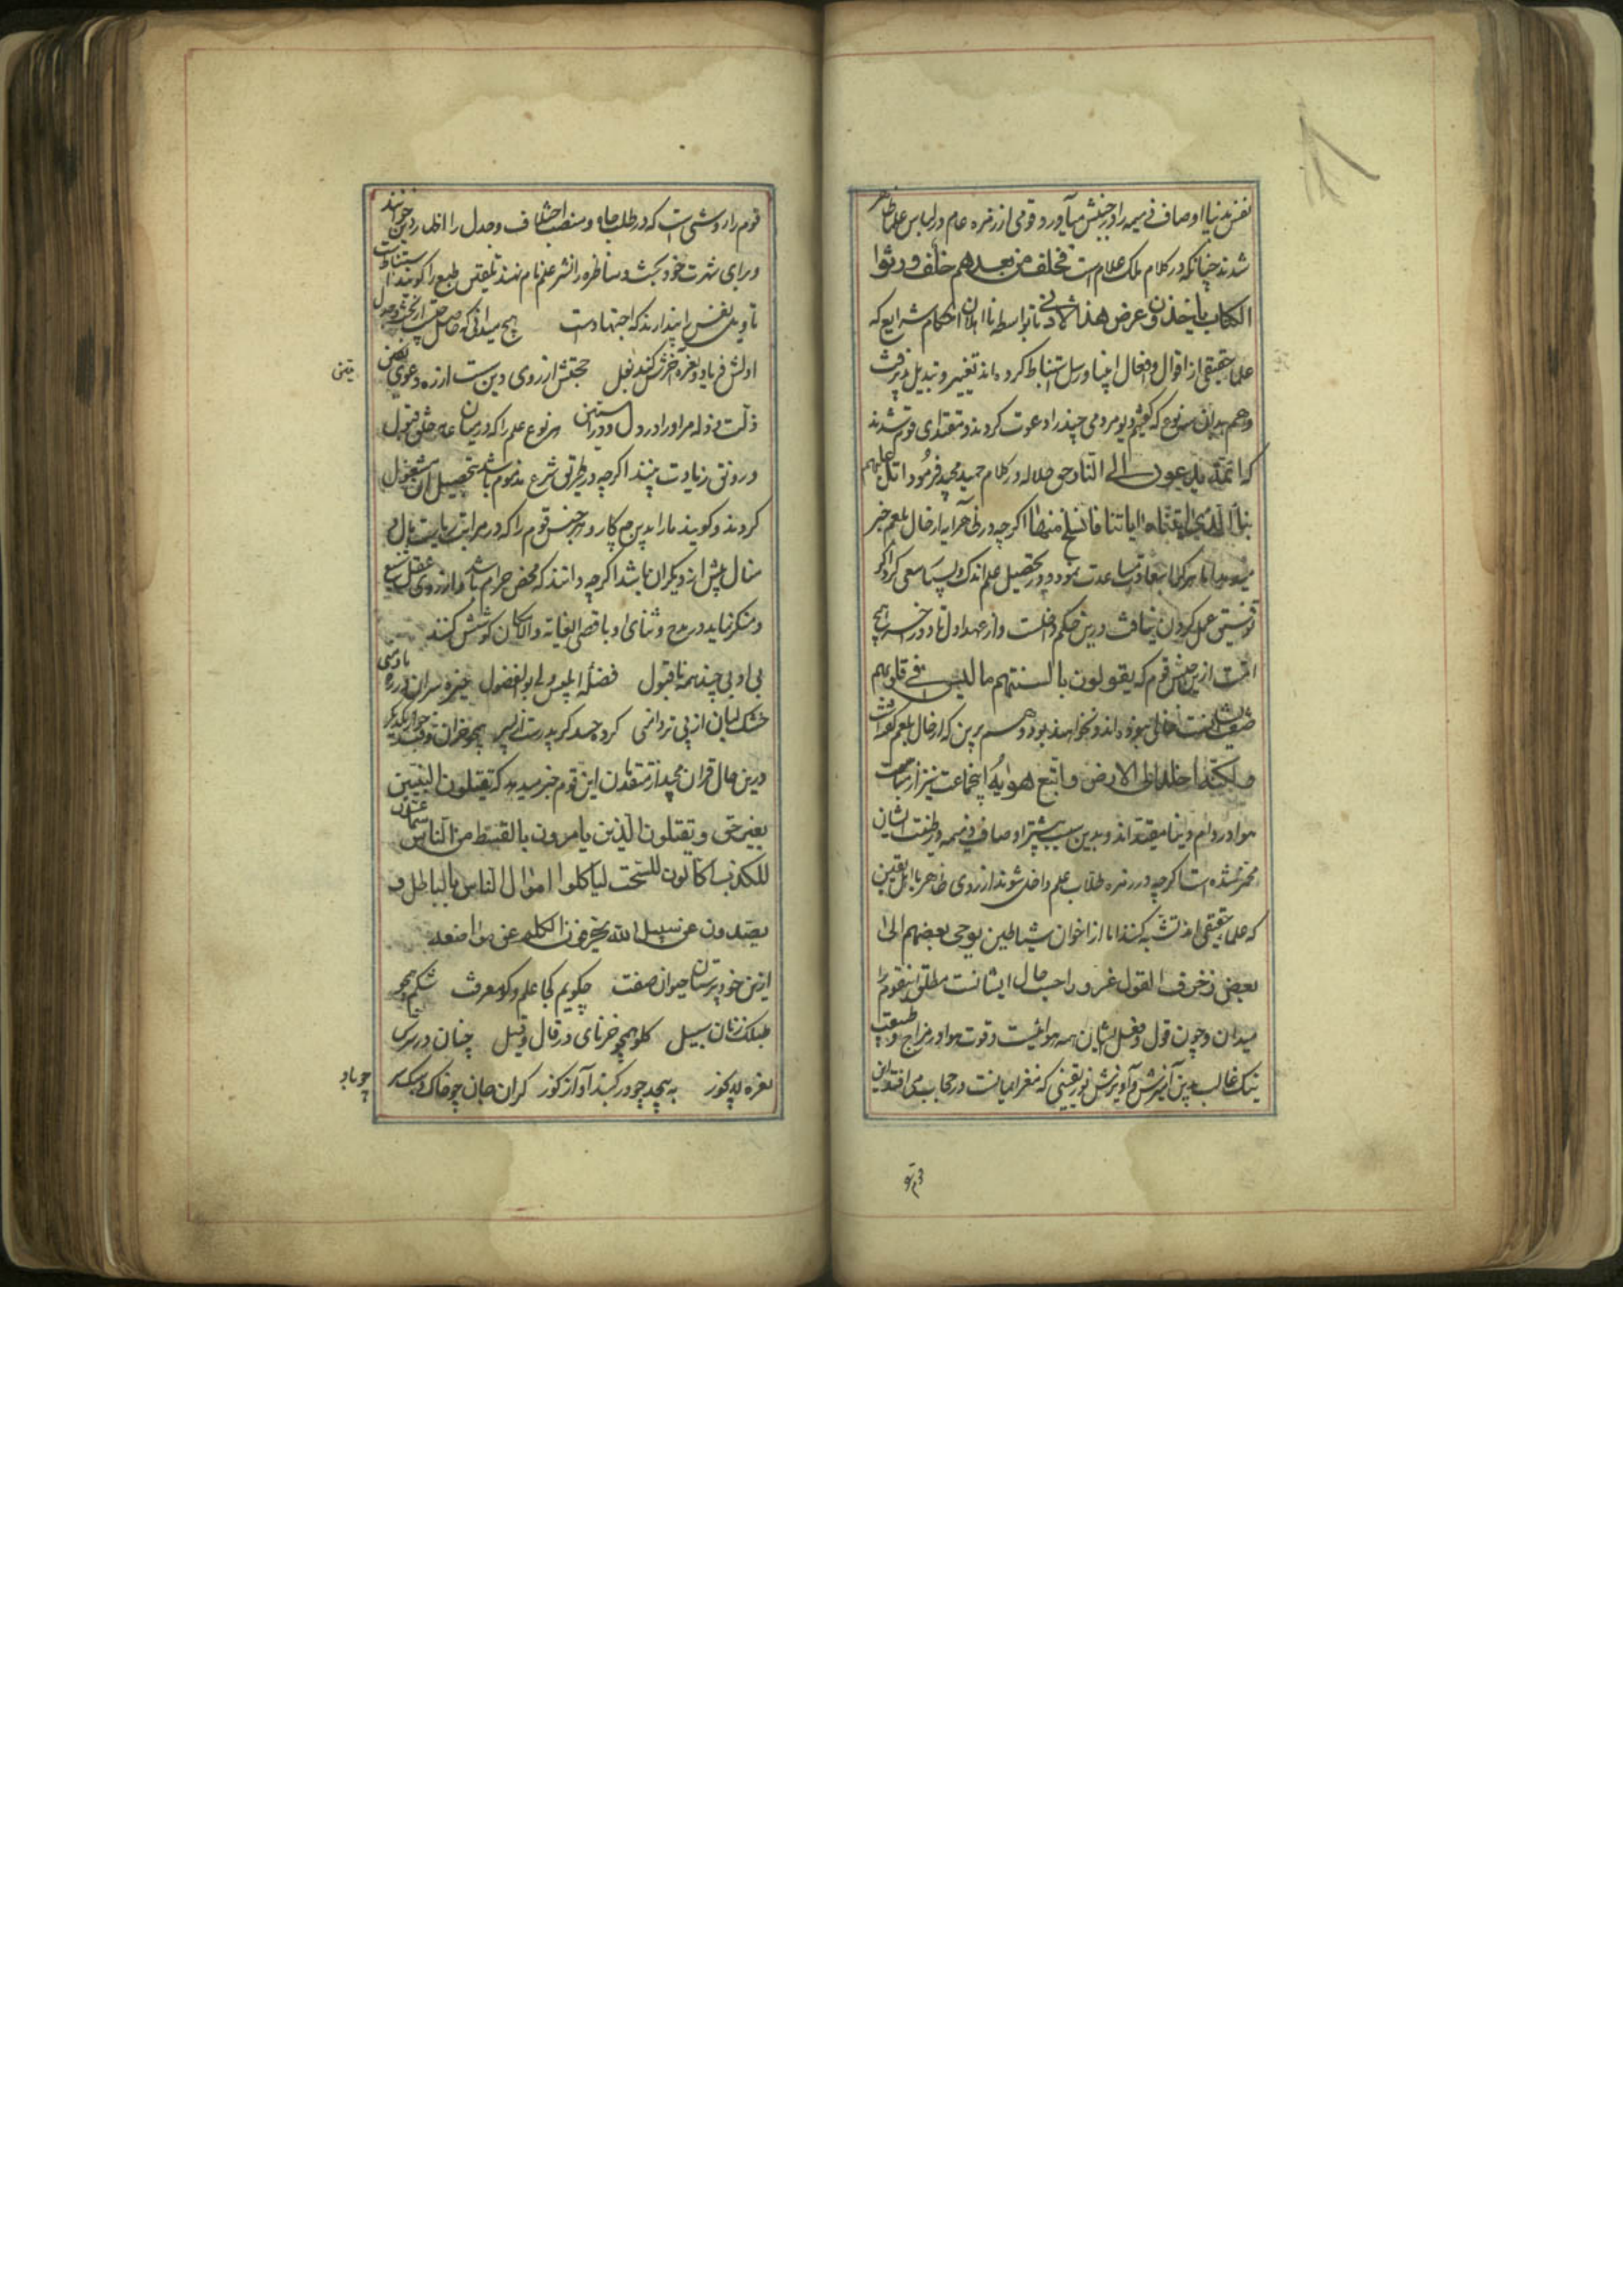 نفس بدنیا اوصاف ذمیمه را در جنبش می‌آورد و قومی از زمره عام در لباس علما ظاهر
شدند چنانکه در کلام ملک علام است فخلف من بعدهم خلف ورثوا
الکتاب یاخذون عرض هذا الادنی تا بواسطه نااهلان احکام شرایع که
علماء حقیقی از اقوال و افعال انبیا و رسل استنباط کرده‌اند تغییر و تبدیل پذیرفت
و هم بدان نوع که مردمی چند را دعوت کردند و مقتدای قوم شدند
که ائمة یدعون الی النار حق جلاله در کلام حمید مجید فرمود اتل علیهم
نبأ الذی اتیناه ایاتنا فانسلخ منها اگرچه در ظاهر آیه از حال بلعم خبر
میدهد اما هر کرا سعادت مساعدت نمود و در تحصیل علم اندک و بسیار سعی کرد اگر
توفیق عمل کردن نیافت درین حکم داخلست و از عهد اول تا دور آخر هیچ
وقت ازین جنس قوم که یقولون بالسنتهم ما لیس فی قلوبهم
صفت ایشانست خالی نبوده‌اند و نخواهند بود و هم برین که از حال بلعم گفت
ولکنه اخلد الی الارض واتبع هویه این جماعت نیز از متابعت
هوا در دوام دنیا مقیداند و بدین سبب بیشتر اوصاف ذمیمه در طینت ایشان
مخمر شده است اگرچه در زمره طلاب علم داخل شوند از روی ظاهر با اهل یقین
که علماء حقیقی اند تشبه کنند اما از اخوان شیاطین یوحی بعضهم الی
بعض زخرف القول غرورا حسب حال ایشانست مطلق اینقوم را
میدان و چون قول و فعل ایشان همه هوائیست و قوت هوا در مزاج و طبیعت
نیک غالب بدین آمیزش و آویزش نور یقینی که مغز ایمانست در حجاب می افتد این
قوم را روشی است که در طلب جاه و منصب اختلاف و جدل را اظهار دین خوانند
و برای شهرت خود بحث و مناظره را نشر علم نام نهند تلفیق طبع را گویند استنباطست
تأویل نفس را پندارند که اجتهادست هیچ میدانی که حاصل چیست از بحث و جدل
اولش فریاد و نعره آخرش کند نغل حجتش از روی دین نیست از ره دعوی یعنی
ذلت و ذله مر او را در دل و در آستین هر نوع علم را که در میان عامه خلق قبول
و رونق زیادت بینند اگرچه در طریق شرع مذموم باشد بتحصیل آن مشغول
گردند و گویند ما را بدین چه کار و هر جنس قوم را که در مراتب ریاست بال و
منال بیش از دیگران باشد اگرچه دانند که محض حرام باشد و از روی عقل شنیع
و منکر نماید در مدح و ثنای او باقصی الغایة والامکان کوشش کنند
بی ادبی چند همه ناقبول فضله ابلیس ولی بوالفضول خیره سران در ره
خشک لبان از پی تردامنی کرده حسد همچو خران در قفای یکدیگر
درین حال قران مجید از متقدمان این قوم خبر میدهد که یقتلون النبیین
بغیر حق ویقتلون الذین یامرون بالقسط من الناس سماعون
للکذب اکالون للسحت لیاکلوا اموال الناس بالباطل و
یصدون عن سبیل الله یحرفون الکلم عن مواضعه
ازین خودپرستان حیوان صفت چگویم کجا علم و کو معرفت شکم همچو
طبلک زنان سبیل کلو همچو خرنای در قال و قیل چنان در سرش
نعره بپیچد چو در گنبد آواز گوز گران جان چو خاک و سبک سر
چو باد